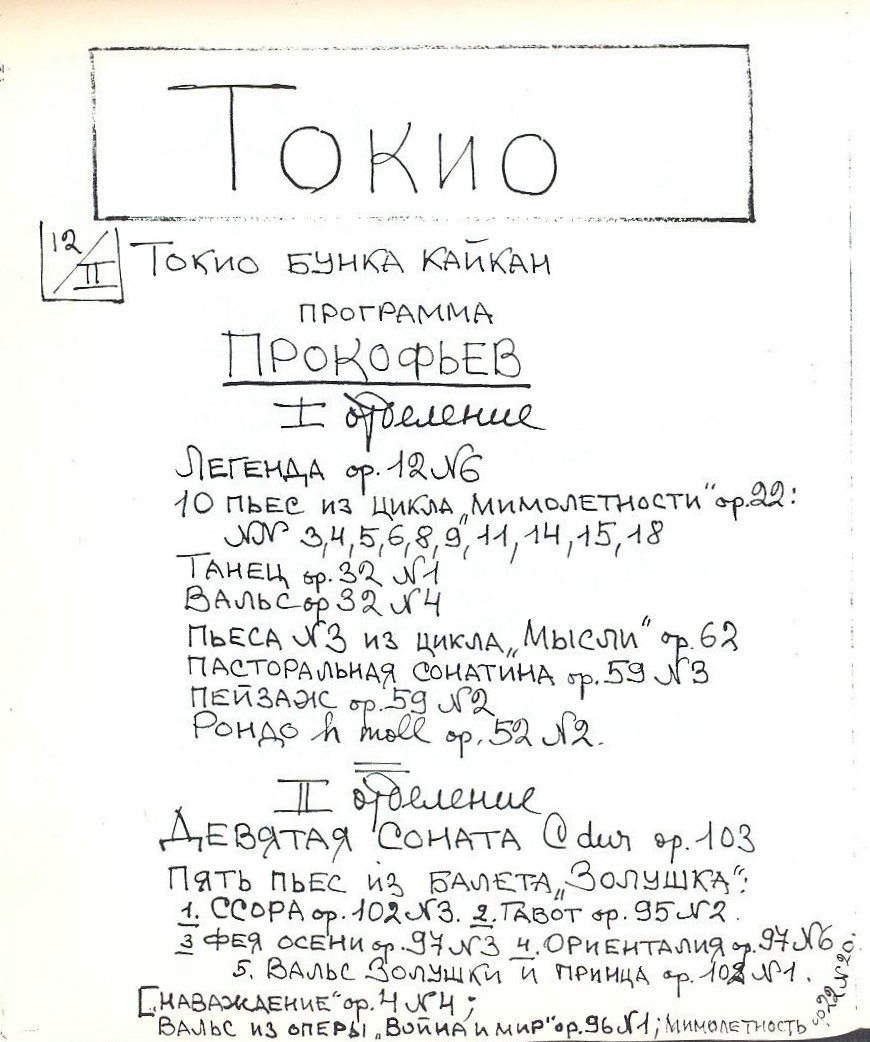 Токио
12/II Токио Бунка Кайкан
программа
Прокофьев
I отделение
Легенда op. 12 N6
10 пьес из цикла „Мимолетности“ op. 22:
NN 3,4,5,6,8,9,11,14,15,18
Танец op. 32 N1
Вальс op 32 N4
Пьеса N3 из цикла „Мысли“ op. 62
Пасторальная сонатина op. 59 N3
Пейзаж op. 59 N2
Рондо h moll op. 52 N2.
II отделение
Девятая соната C dur op. 103
Пять пьес из балета „Золушка“:
1. Ссора op. 102 N3. 2. Гавот op. 95 N2.
3 Фея осени op. 97 N3 4. Ориенталия op. 97 N6
5. Вальс Золушки и Принца op. 102 N1.
[„Наваждение“ op. 4 N4;
Вальс из оперы „Война и мир“ op. 96 N1; Мимолетность op. 22 N20.